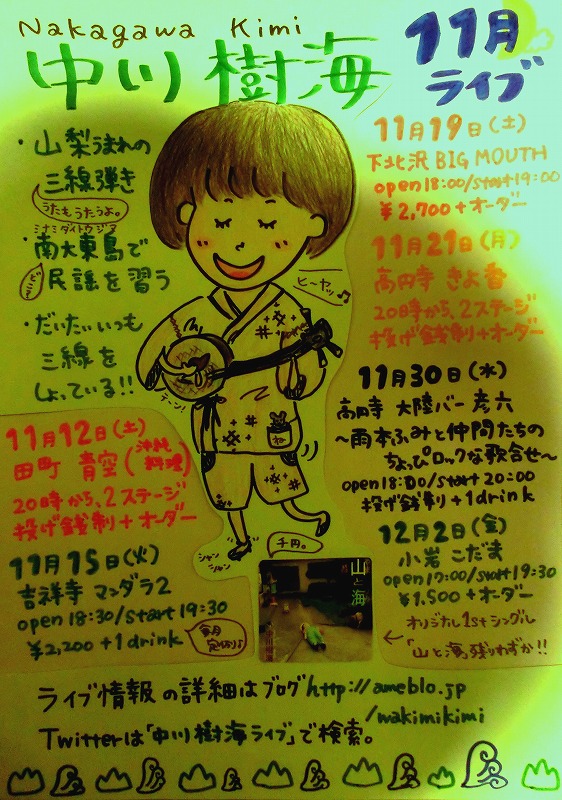 Nakagawa Kimi
中川 樹海
11月
ライブ
・山梨うまれの
三線弾き
うたもうたうよ。
ミナミダイトウジマ
・南大東島で
どこそこ
民謡を習う
・だいたいいつも
三線を
しょっている!!
11月12日(土)
田町 青空(沖縄料理)
20時から、2ステージ
投げ銭制+オーダー
11月15日(火)
吉祥寺 マンダラ2
open 18:30/start 19:30
¥2,200+1drink
11月19日(土)
下北沢 BIG MOUTH
open 18:00/start 19:00
¥2,700+オーダー
11月21日(月)
高円寺 きよ香
20時から、2ステージ
投げ銭制+オーダー
11月30日(水)
高円寺 大陸バー 彦六
~雨本ふみと仲間たちの
ちょっぴロックな歌合せ~
open 18:00/start 20:00
投げ銭制+1drink
12月2日(金)
小岩 こだま
open 19:00/start 19:30
¥1,500+オーダー
オリジナル1stシングル
←「山と海」残りわずか!!
ヒーヤッ♪
テーン!
シャン
シャン
千円。
山と海
ライブ情報の詳細はブログhttp://ameblo.jp
/wakimikimi
Twitterは「中川樹海ライブ」で検索。